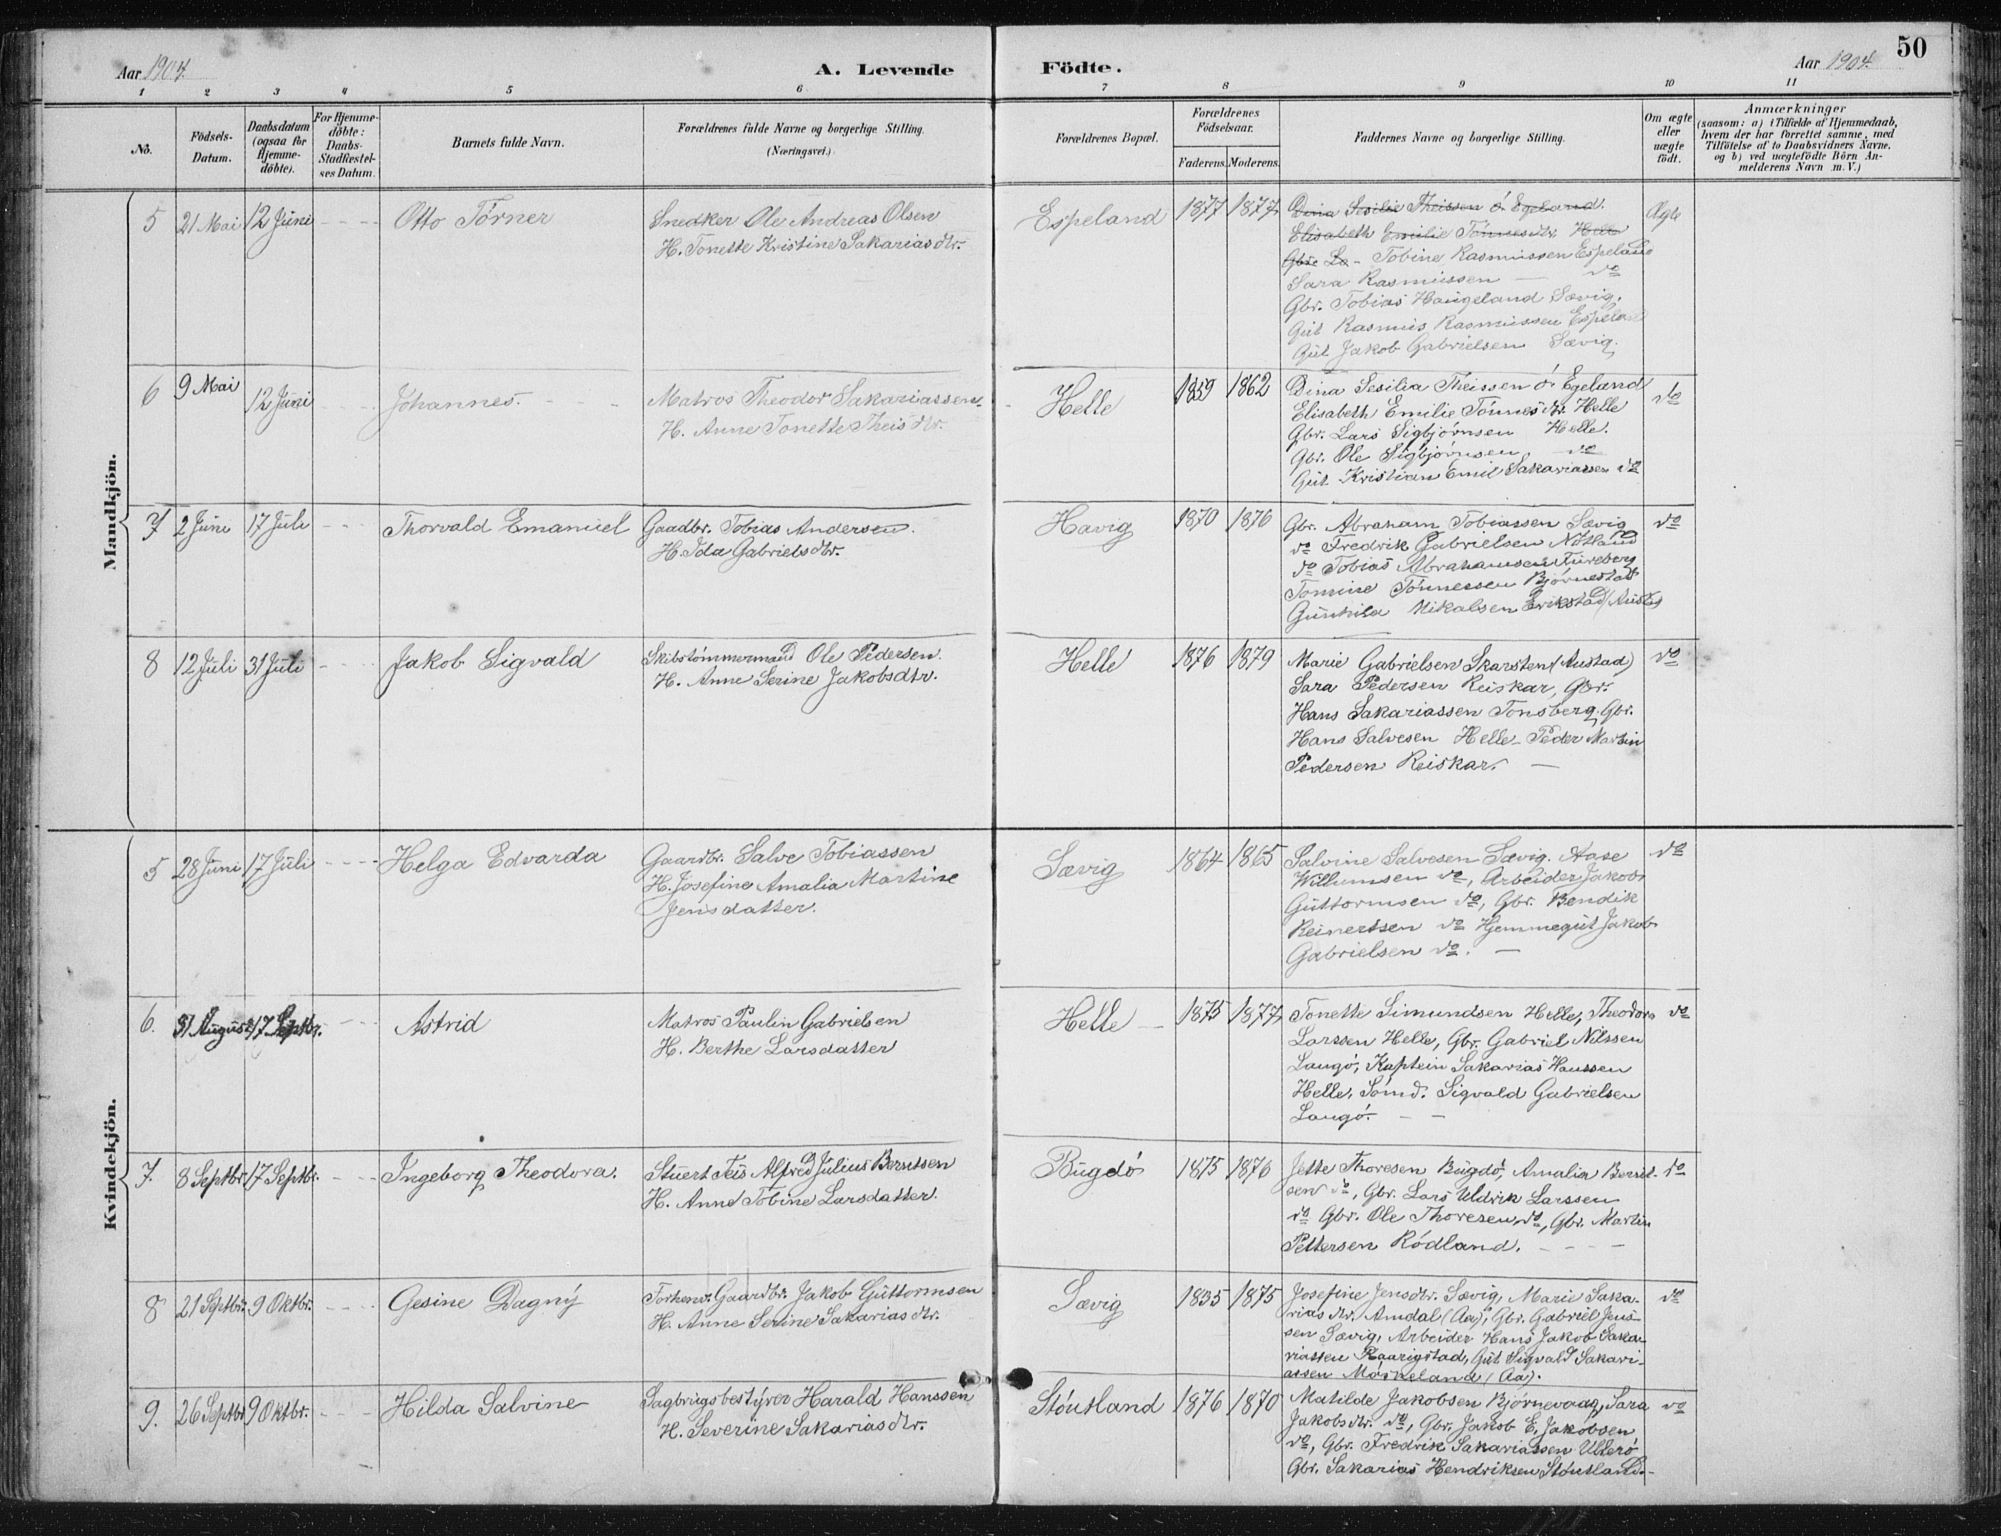 50
Aar 1904. A. Levende Födte. Aar 1904.
1 2 3 4 5 6 7 8 9 10 11
No.
Födsels-
Datum.
Daabsdatum
(ogsaa for
Hjemme-
döbte).
For Hjemme-
döbte:
Daabs-
Stadfæstel-
ses Datum.
Barnets fulde Navn.
Forældrenes fulde Navne og borgerlige Stilling.
(Næringsvei.)
Forældrenes Bopæl.
Forældrenes
Födselsaar.
Faderens. Moderens.
Faddernes Navne og borgerlige Stilling.
Om ægte
eller
uægte
födt.
Anmærkninger
(saasom: a) i Tilfælde af Hjemmedaab,
hvem der har forrettet samme, med
Tilföielse af to Daabsvidners Navne,
og b) ved uægtefödte Börn An-
melderens Navn m. V.)
Mandkjön.
5 21 Mai 12 Juni Otto Törner
Snedker Ole Andreas Olsen
H. Tonette Kristine Sakariasdtr.
Espeland 1877 1877
Dina Sesilie Theissen ó. Egeland.
Elisabeth Emilie Tönnesdtr. Helle
Gbr. La- Tobine Rasmussen Espeland
Sara Rasmussen — do
Gbr. Tobias Haugeland Sævig.
Gut Rasmus Rasmussen Espeland
Gut Jakob Gabrielsen Sævig.
Ægte
6 9 Mai 12 Juni Johannes.
Matros Theodor Sakariassen
H. Anne Tonette Theisdtr.
Helle 1859 1862
Dina Sesilia Theissen ó. Egeland
Elisabeth Emilie Tönnesdtr. Helle
Gbr. Lars Sigbjörnsen Helle.
Gbr. Ole Sigbjörnsen do
Gut Kristian Emil Sakariassen do
do
7 2 Juni 17 Juli Thorvald Emanuel
Gaadbr. Tobias Andersen.
H. Ida Gabrielsdtr.
Havig 1870 1876
Gbr. Abraham Tobiassen Sævig
do Fredrik Gabrielsen Nötland
do Tobias Abrahamsen Fureberg
Tomine Tönnessen Björnestad
Gunhild Mikalsen Erikstad (Austad
do
8 12 Juli 31 Juli Jakob Sigvald
Skibstömmermand Ole Pedersen.
H. Anne Serine Jakobsdtr.
Helle 1876 1879
Marie Gabrielsen Skarsten (Austad)
Sara Pedersen Reiskar, Gbr.
Hans Sakariassen Tonsberg, Gbr.
Hans Salvesen Helle - Peder Martin
Pedersen Reiskar. —
do
Kvindekjön.
5 28 Juni 17 Juli Helga Edvarda
Gaardbr. Salve Tobiassen
H. Josefine Amalia Martine
Jensdatter.
Sævig 1864 1865
Salvine Salvesen Sævig. Aase
Willumsen do, Arbeider Jakob
Guttormsen do, Gbr. Bendik
Reinertsen do Hjemmegut Jakob
Gabrielsen do. —
do
6. 31 August 17 Septbr. Astrid
Matros Paulin Gabrielsen
H. Berthe Larsdatter
Helle 1875 1877
Tonette Simundsen Helle, Theodora
Larssen Helle, Gbr. Gabriel Nilssen
Langö, Kaptein Sakarias Hanssen
Helle, Sömd. Sigvald Gabrielsen
Langö. — —
do
7. 8 Septbr. 17 Septbr. Ingeborg Theodora.
Stuert Teis Alfred Julius Berntsen
H. Anne Tobine Larsdatter.
Bugdö 1875 1876
Jette Thoresen Bugdö, Amalia Bernt-
sen do, Gbr. Lars Uldrik Larssen
do Gbr. Ole Thoresen do, Gbr. Martin
Pettersen Rödland. - - -
do
8 21 Septbr. 9 Oktbr. Gesine Dagny
Gaardbr. Jakob Guttormsen
H. Anne Serine Sakariasdtr.
Sævig 1835 1875
Josefine Jensdtr. Sævig, Marie Saka-
riasdtr. Amdal (Aa), Gbr. Gabriel Jens-
sen Sævig, Arbeider Hans Jakob Saka-
riassen Raarigstad, Gut Sigvald Sakari-
assen Möskeland (Aa).
do
9. 26 Septbr. 9 Oktbr. Hilda Salvine
Sagbrugsbestyrer Harald Hanssen
H. Severine Sakariasdtr.
Stóutland 1876 1870
Matilde Jakobsen Björnevaag, Sara
Jakobsdtr. do, Gbr. Jakob E. Jakobsen
do, Gbr. Fredrik Sakariassen Ulleró
Gbr. Sakarias Hendriksen Stóutland. -
do